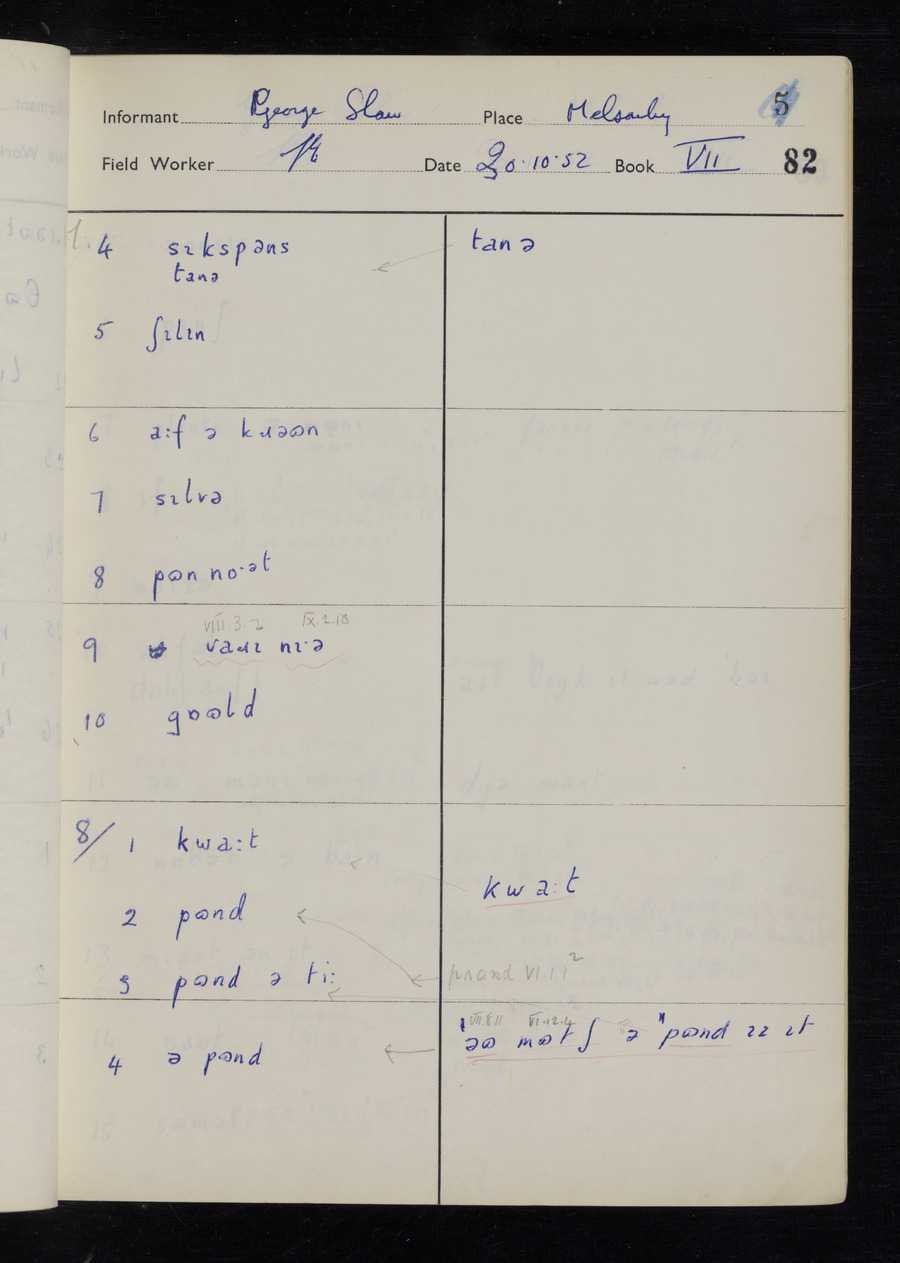 Informant George Shaw Place Melsonby 5
Field Worker Date 20.10.52 Book VII 82
4 sɪkspəns tanə
tanə
5 ʃɪlɪn
6 a:f ə kɹəʊn
7 sɪlvə
8 pʊn no·ət
VIII.3.2 IX.2.13
9 vaɹɪ nɪ·ə
10 gʊəld
8/ 1 kwa:t
kwa:t
2 pʊnd
3 pʊnd ə ti: VI.1.1²
VII.8.11 VI.12.4
4 ə pʊnd ˈəʊ mʊtʃ ə "pʊnd ɪz ɪt